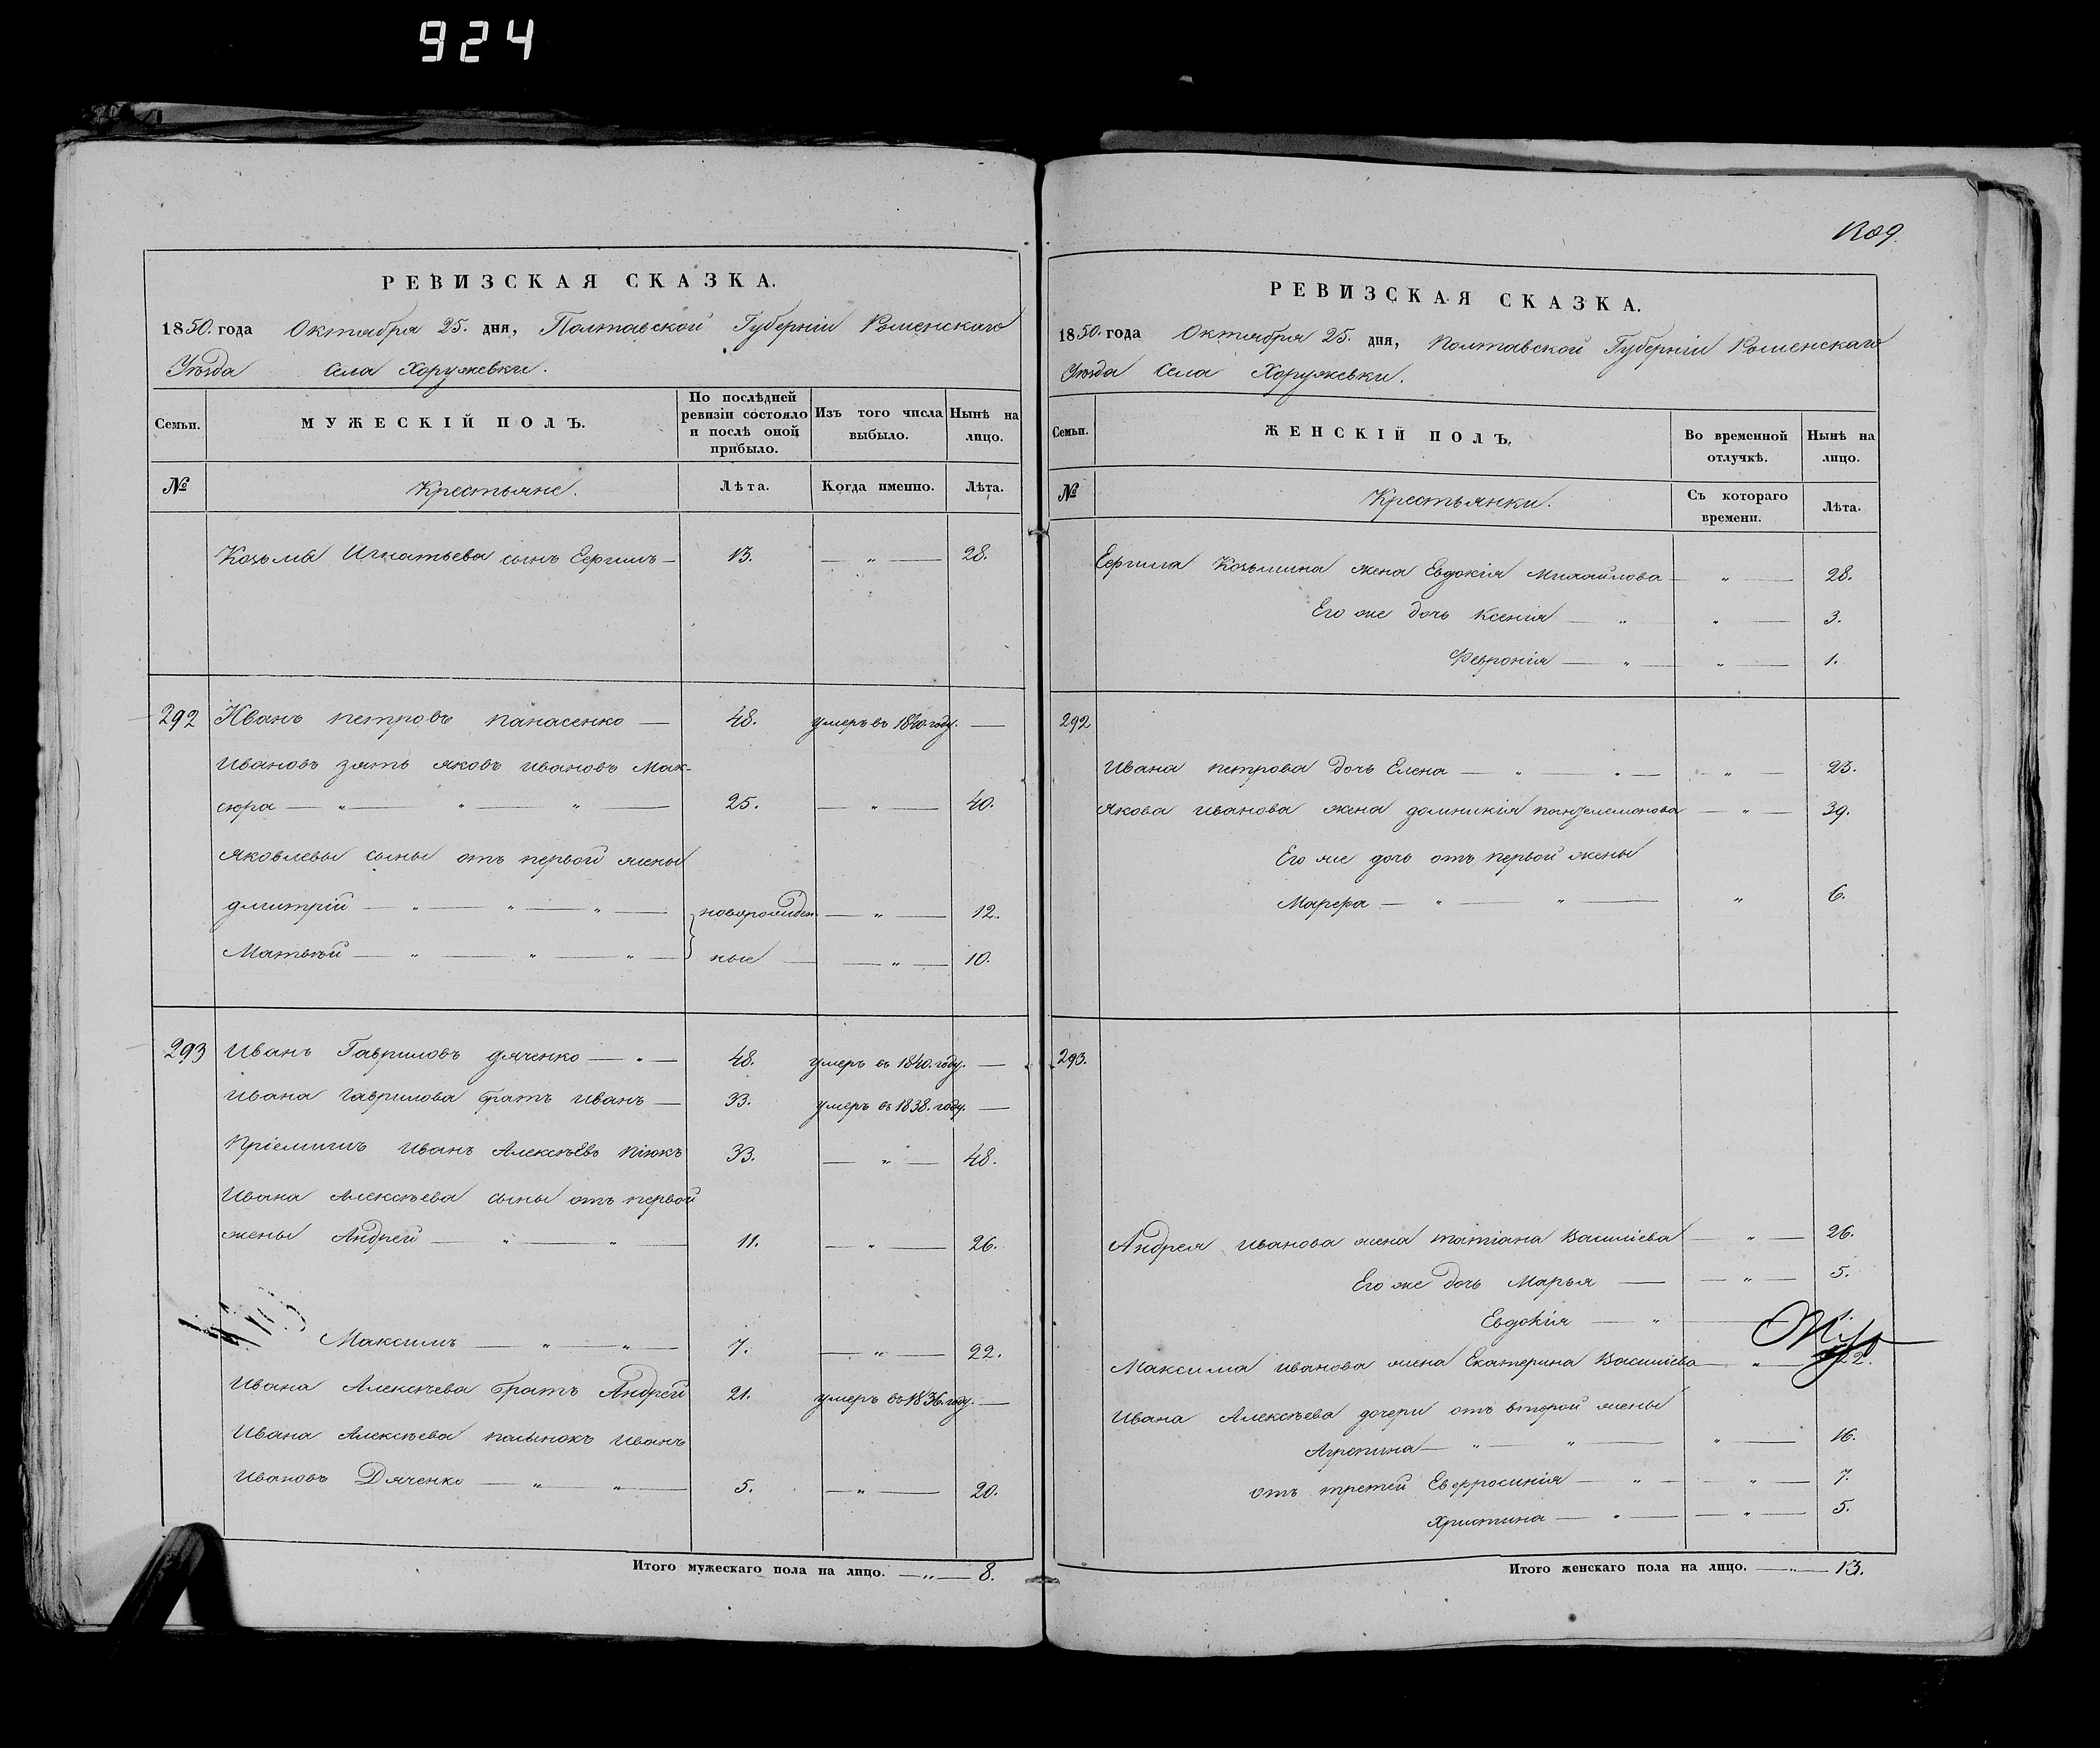 924
РЕВИЗСКАЯ СКАЗКА.
1850. года Октября 25. дня, Полтавской Губерніи Роменскаго
Уѣзда Села Хоружевки.
Семьи. МУЖЕСКІЙ ПОЛЪ. По послѣдней ревизіи состояло и послѣ оной прибыло. Изъ того числа выбыло. Нынѣ на лицо.
№ Крестьяне. Лѣта. Когда именно. Лѣта.
Козьма Игнатьева сынъ Ефримъ — 13. — „ — 28.
292 Иванъ петровъ панасенко — 48. умеръ въ 1840. году. —
Ивановъ зять яковъ ивановъ Мак-
сюра — „ — „ — „ — 25. — „ — 40.
яковлевы сыны отъ первой жены
дмитрій — „ — „ — „ — новорожден — „ — 12.
Матвѣй — „ — „ — „ — ные — — „ — 10.
293 Иванъ Гавриловъ дяченко — „ — 48. умеръ въ 1840. году. —
Ивана гаврилова братъ иванъ — 33. умеръ въ 1838. году. —
Пріемишъ иванъ Алексѣевъ піюкъ 33. — „ — 48.
Ивана Алексѣева сыны отъ первой
жены Андрей — „ — „ — 11. — „ — 26.
Максимъ — „ — „ — 7. — „ — 22.
Ивана Алексѣева братъ Андрей 21. умеръ въ 1836. году. —
Ивана Алексѣева пасынокъ иванъ
Ивановъ Дяченко — „ — „ — 5. — „ — 20.
Итого мужескаго пола на лицо. — „ — 8.
1209.
РЕВИЗСКАЯ СКАЗКА.
1850. года Октября 25. дня, Полтавской Губерніи Роменскаго
Уѣзда Села Хоружевки.
Семьи. ЖЕНСКІЙ ПОЛЪ. Во временной отлучкѣ. Нынѣ на лицо.
№ Крестьянки. Съ котораго времени. Лѣта.
Козьмина жена Евдокія Михайлова — „ — 28.
Его же дочь Ксенія — „ „ — 3.
Февронія — „ — „ — 1.
292
Ивана петрова дочь Елена — „ — „ — — „ — 23.
Якова иванова жена домникія пантелемонова — „ — 39.
Его же дочь отъ первой жены
Марфа — „ — „ — „ 6.
293.
Андрея иванова жена татіана Василіева — „ — 26.
Его же дочь Марья — — „ — 5.
Евдокія — „ —
Максима иванова жена Екатерина Василіева — „ — 22.
Ивана Алексѣева дочери отъ второй жены
Агрепина — „ — „ — „ — 16.
отъ третей Евфросинія — „ — — „ — 7.
Христина — „ — — „ — 5.
Итого женскаго пола на лицо. — „ — 13.